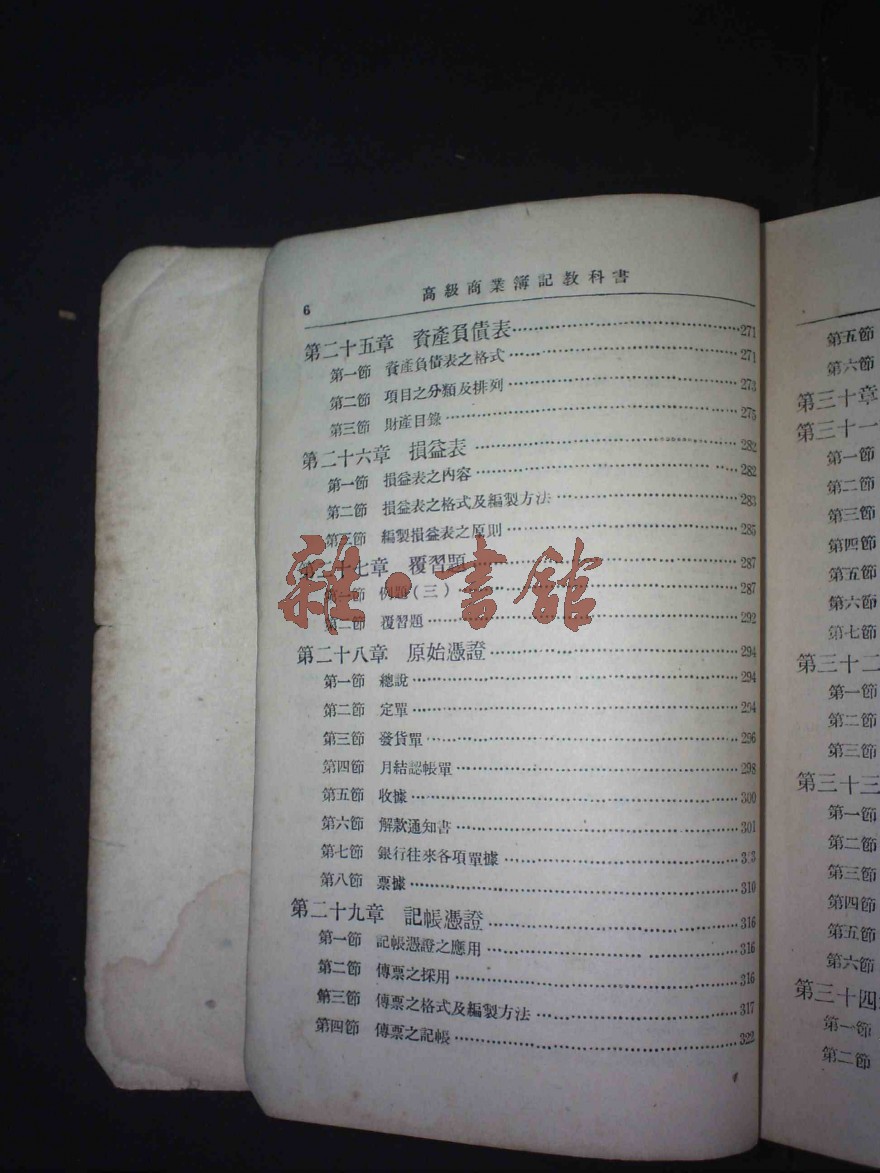 6
高級商業簿記教科書
第二十五章 資產負債表……271
第一節 資產負債表之格式……271
第二節 項目之分類及排列……273
第三節 財產目錄……275
第二十六章 損益表……282
第一節 損益表之內容……282
第二節 損益表之格式及編製方法……283
第三節 編製損益表之原則……285
第二十七章 覆習題……287
第一節 例題(三)……287
第二節 覆習題……292
第二十八章 原始憑證……294
第一節 總說……294
第二節 定單……294
第三節 發貨單……296
第四節 月結認帳單……298
第五節 收據……300
第六節 解款通知書……301
第七節 銀行往來各項單據……
第八節 票據……310
第二十九章 記帳憑證……316
第一節 記帳憑證之應用……316
第二節 傳票之採用……316
第三節 傳票之格式及編製方法……317
第四節 傳票之記帳……322
雜·書館
第五節
第六節
第三十章
第三十一
第一節
第二節
第三節
第四節
第五節
第六節
第七節
第三十二
第一節
第二節
第三節
第三十三
第一節
第二節
第三節
第四節
第五節
第六節
第三十四
第一節
第二節